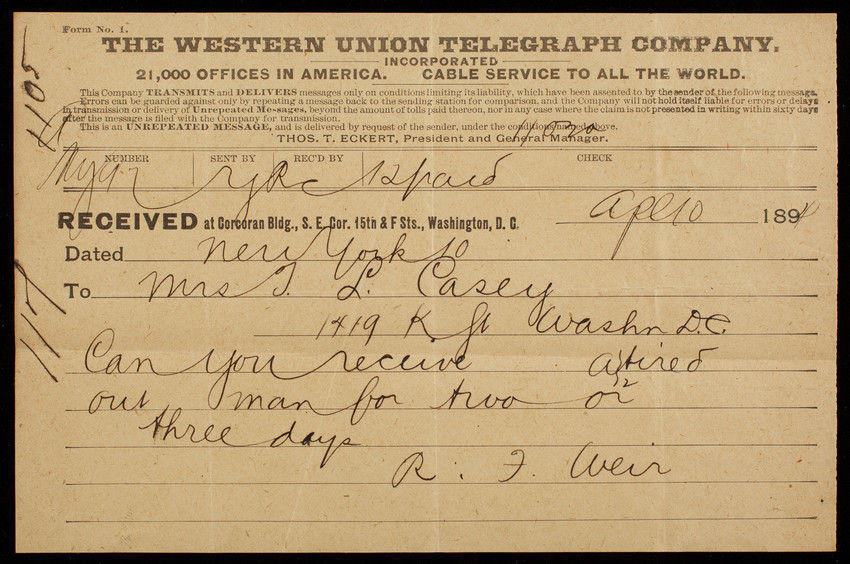 Form No. 1.
THE WESTERN UNION TELEGRAPH COMPANY.
INCORPORATED
21,000 OFFICES IN AMERICA. CABLE SERVICE TO ALL THE WORLD.
This Company TRANSMITS and DELIVERS messages only on conditions limiting its liability, which have been assented to by the sender of the following message.
Errors can be guarded against only by repeating a message back to the sending station for comparison, and the Company will not hold itself liable for errors or delays
in transmission or delivery of Unrepeated Messages, beyond the amount of tolls paid thereon, nor in any case where the claim is not presented in writing within sixty days
after the message is filed with the Company for transmission.
This is an UNREPEATED MESSAGE, and is delivered by request of the sender, under the conditions named above.
THOS. T. ECKERT, President and General Manager.
NUMBER SENT BY REC'D BY CHECK
RECEIVED at Corcoran Bldg., S. E. Cor. 15th & F Sts., Washington, D. C. Apl 10 1894
Dated New York 10
To Mrs T. L. Casey
1419 K St Washn D.C.
Can you receive a tired
out man for two or
three days
R. F. Weir
1105
117